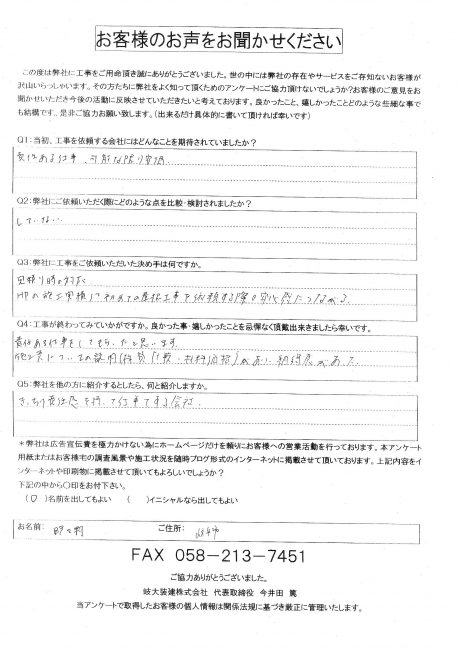 お客様のお声をお聞かせください
この度は弊社に工事をご用命頂き誠にありがとうございました。世の中には弊社の存在やサービスをご存知ないお客様が
沢山いらっしゃいます。その方たちに弊社をよく知って頂くためのアンケートにご協力頂けないでしょうか?お客様のご意見をお
聞かせいただき今後の活動に反映させていただきたいと考えております。良かったこと、嬉しかったことどのような些細な事で
も結構です。是非ご協力お願い致します。(出来るだけ具体的に書いて頂ければ幸いです)
Q1:当初、工事を依頼する会社にはどんなことを期待されていましたか?
責任ある仕事、可能な限り安価
Q2:弊社にご依頼いただく際にどのような点を比較・検討されましたか?
していない
Q3:弊社に工事をご依頼いただいた決め手は何ですか。
見積り時の対応
HPの施工実績は初めての屋根工事を依頼する際の安心感につながる
Q4:工事が終わってみていかがですか。良かった事・嬉しかったことを忌憚なく頂戴出来ましたら幸いです。
責任ある仕事をしてもらったと思います
施工についての説明 があり 納得感があった
Q5:弊社を他の方に紹介するとしたら、何と紹介しますか。
きっちり責任感を持って仕事をする会社
*弊社は広告宣伝費を極力かけない為にホームページだけを頼りにお客様への営業活動を行っております。本アンケート
用紙またはお客様宅の調査風景や施工状況を随時ブログ形式のインターネットに掲載させて頂いております。上記内容をイ
ンターネットや印刷物に掲載させて頂いてもよろしいでしょうか?
下記の中から○印をお付下さい。
(○)名前を出してもよい ( )イニシャルなら出してもよい
お名前: ご住所:
FAX 058-213-7451
ご協力ありがとうございました。
岐大装建株式会社 代表取締役 今井田 篤
当アンケートで取得したお客様の個人情報は関係法規に基づき厳正に管理いたします。